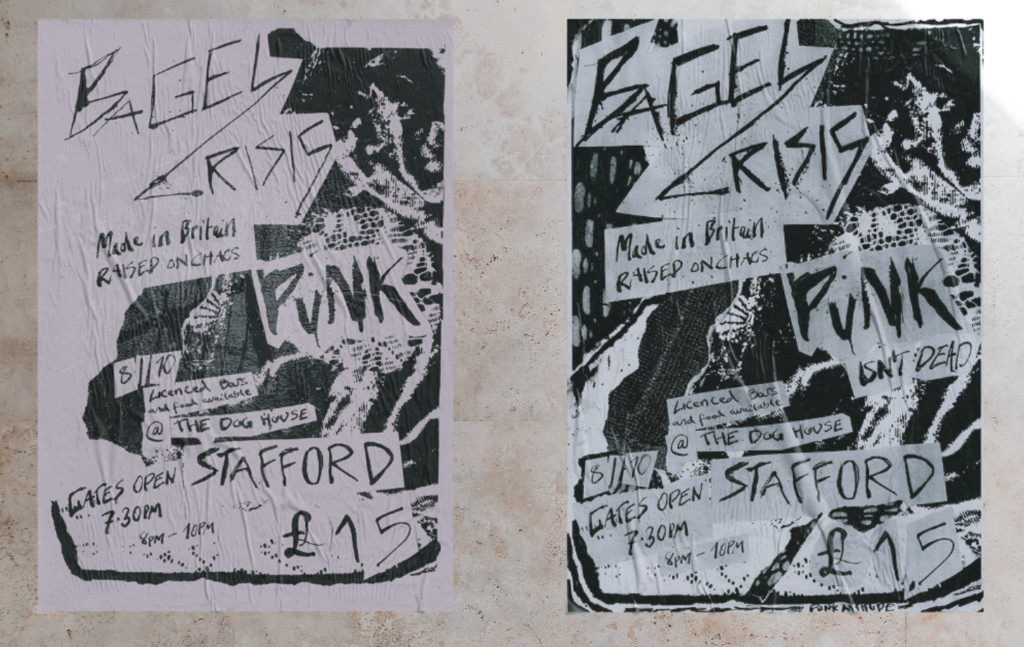 BAGELS
CRISIS
Made in Britain
RAISED ON CHAOS
PUNK
8/1/10
Licenced Bars
and food available
@ THE DOG HOUSE
STAFFORD
GATES OPEN
7.30PM
8PM - 10PM
£15
BAGELS
CRISIS
Made in Britain
RAISED ON CHAOS
PUNK
ISN'T DEAD
Licenced Bars
and food available
@ THE DOG HOUSE
8/1/10
STAFFORD
GATES OPEN
7.30PM
8PM - 10PM
£15